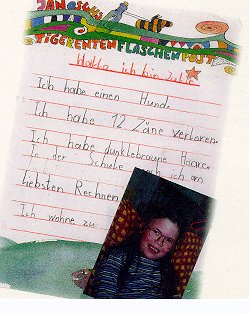 JANOSCHS
TIGERENTEN FLASCHENPOST
Hallo ich bin Julie
Ich habe einen Hund.
Ich habe 12 Zäne verloren.
Ich habe dunklebraune Haare.
In der Schule ich am
liebsten Rechnen
Ich wohne zu